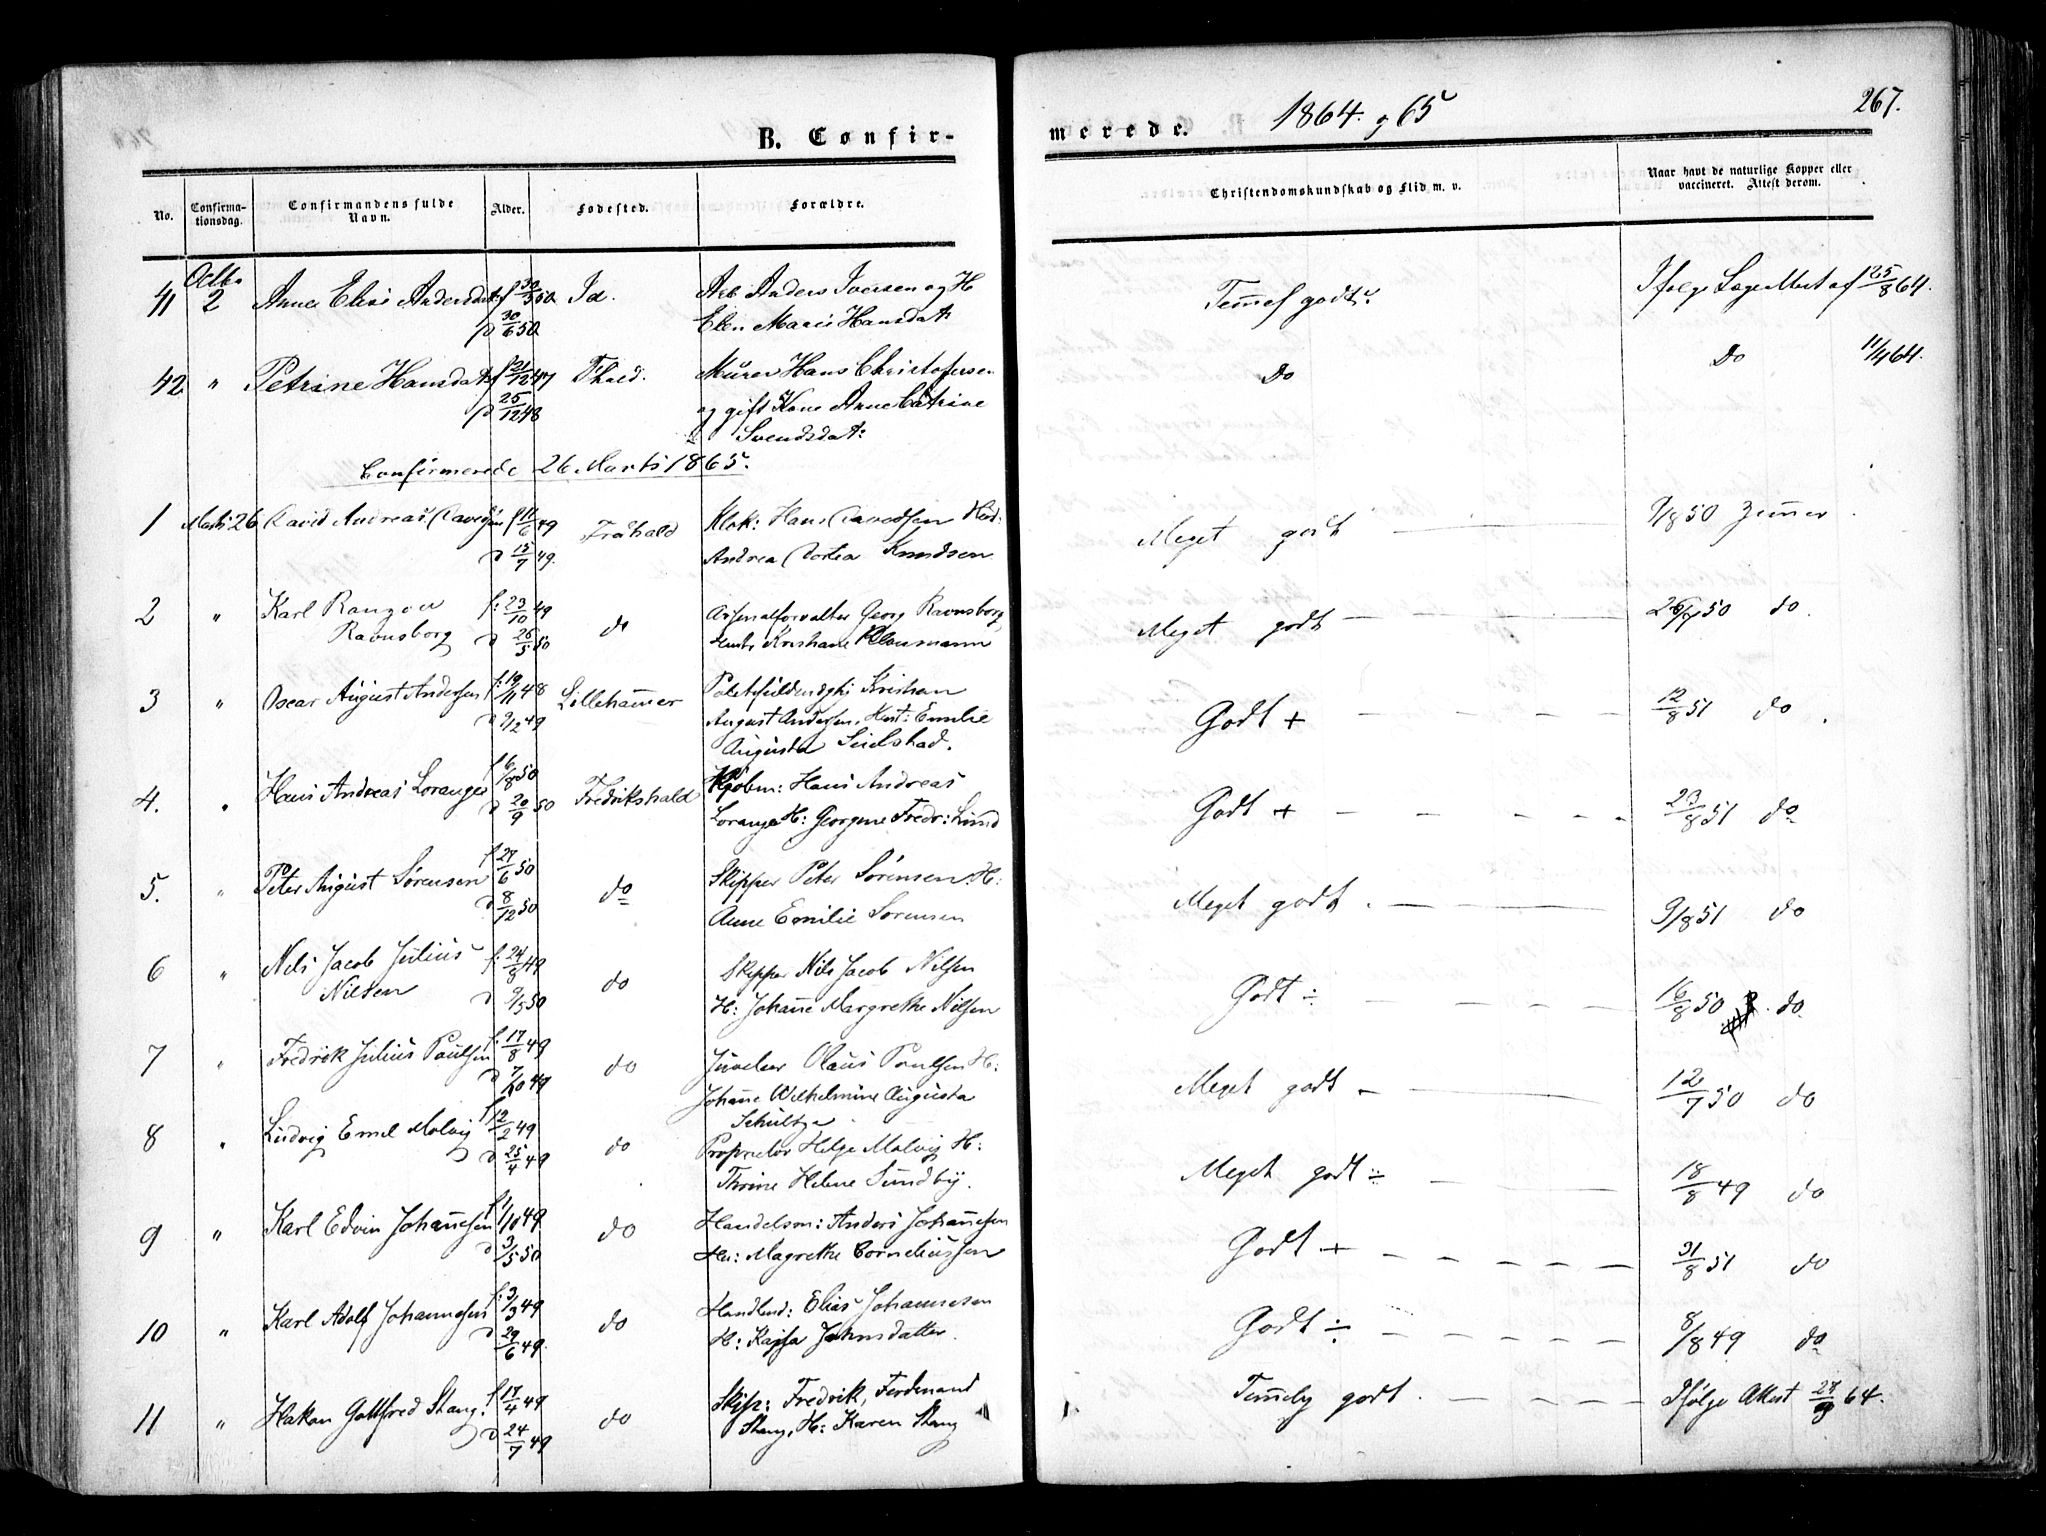 B. Confir-
merede.
1864 og 65
267.
No.
Confirma-
tionsdag.
Confirmandens fulde
Navn.
Alder.
Fødested.
Forældre.
Christendomskundskab og Flid m. v.
Naar havt de naturlige Kopper eller
vaccineret. Attest derom.
Octbr
41 2 Anne Elise Andersdatr f 30/3 50 Id. Arb Anders Iversen og H
d 30/6 50 Elen Marie Hansdatr
Temmel godt. Ifølge Læge Attest af 25/8 64.
42 " Petrine Hansdatr f 21/12 47 Fhald. Murer Hans Christofersen
d 25/12 48 og gift Kone Anne Catrine
Svendsdatr:
Do Do 11/4 64.
Confirmerede 26 Marts 1865.
1 Marts 26 David Andreas Davidsen f 16/6 49 Frdhald Klok: Hans Davidsen Hust:
d 15/7 49. Andrea Dortea Knudsen
Meget godt 9/8 50 Zimmer.
2 " Karl Ranzow f: 23/10 49 do Arsenalforvalter Georg Ravnsborg
Ravnsborg d 26/5 50 Hust: Kristiane Klausmann
Meget godt 26/7 50 do.
3 " Oscar August Andersen f: 19/11 48 Lillehammer Politifuldmægtig Kristian
d 9/2 49 August Andersen, Hust: Emilie
Augusta Seielstad.
Godt + 12/8 51 do.
4. " Hans Andreas Lorange f 6/8 50 Fredrikshald Kjøbm: Hans Andreas
d 20/9 50 Lorange H: Georgine Fredr: Lund
Godt + 23/8 51 do
5. " Peter August Sørensen f 27/6 50 do Skipper Peter Sørensen. H:
d 8/12 50 Anne Emilie Sørensen
Meget godt. 9/8 51 do
6 " Nils Jacob Julius f: 24/8 49 do Skipper Nils Jacob Nilsen
Nilsen d 9/5 50 H: Johanne Margrethe Nilsen
Godt ÷ 16/8 50 do
7 " Fredrik Julius Paulsen f: 17/8 49 do Juveleer Olaus Paulsen H:
d 7/10 49 Johanne Wilhelmine Augusta
Schultze
Meget godt 12/7 50 do
8 " Ludvig Emil Molvig f 12/2 49 do Proprietær Helge Molvig H:
d 25/4 49 Thrine Helene Sundby.
Meget godt ÷ 18/8 49 do
9 " Karl Edvin Johannesen f 1/10 49 do Handelsm: Anders Johannesen
d 3/5 50 Hu: Magrethe Corneliussen
Godt + 31/8 51 do
10 " Karl Adolf Johannesen f: 3/3 49 do Handlend: Elias Johannesen
d 29/6 49. H: Kajsa Jahnsdatter.
Godt ÷ 8/8 49 do
11 " Hakon Gottfred Stang. f 17/4 49 do Skip: Fredrik, Ferdinand
d 24/7 49 Stang, H: Karen Stang
Temmelig godt. Ifølge Attest 27/9 64.